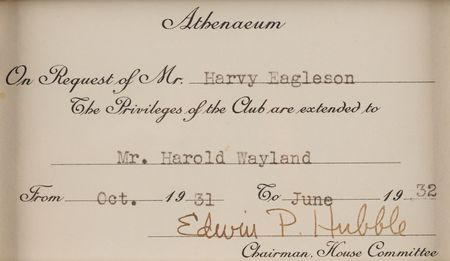 Athenaeum
On Request of Mr. Harvy Eagleson
The Privileges of the Club are extended to
Mr. Harold Wayland
From Oct. 19 31 To June 19 32
Edwin P. Hubble
Chairman, House Committee